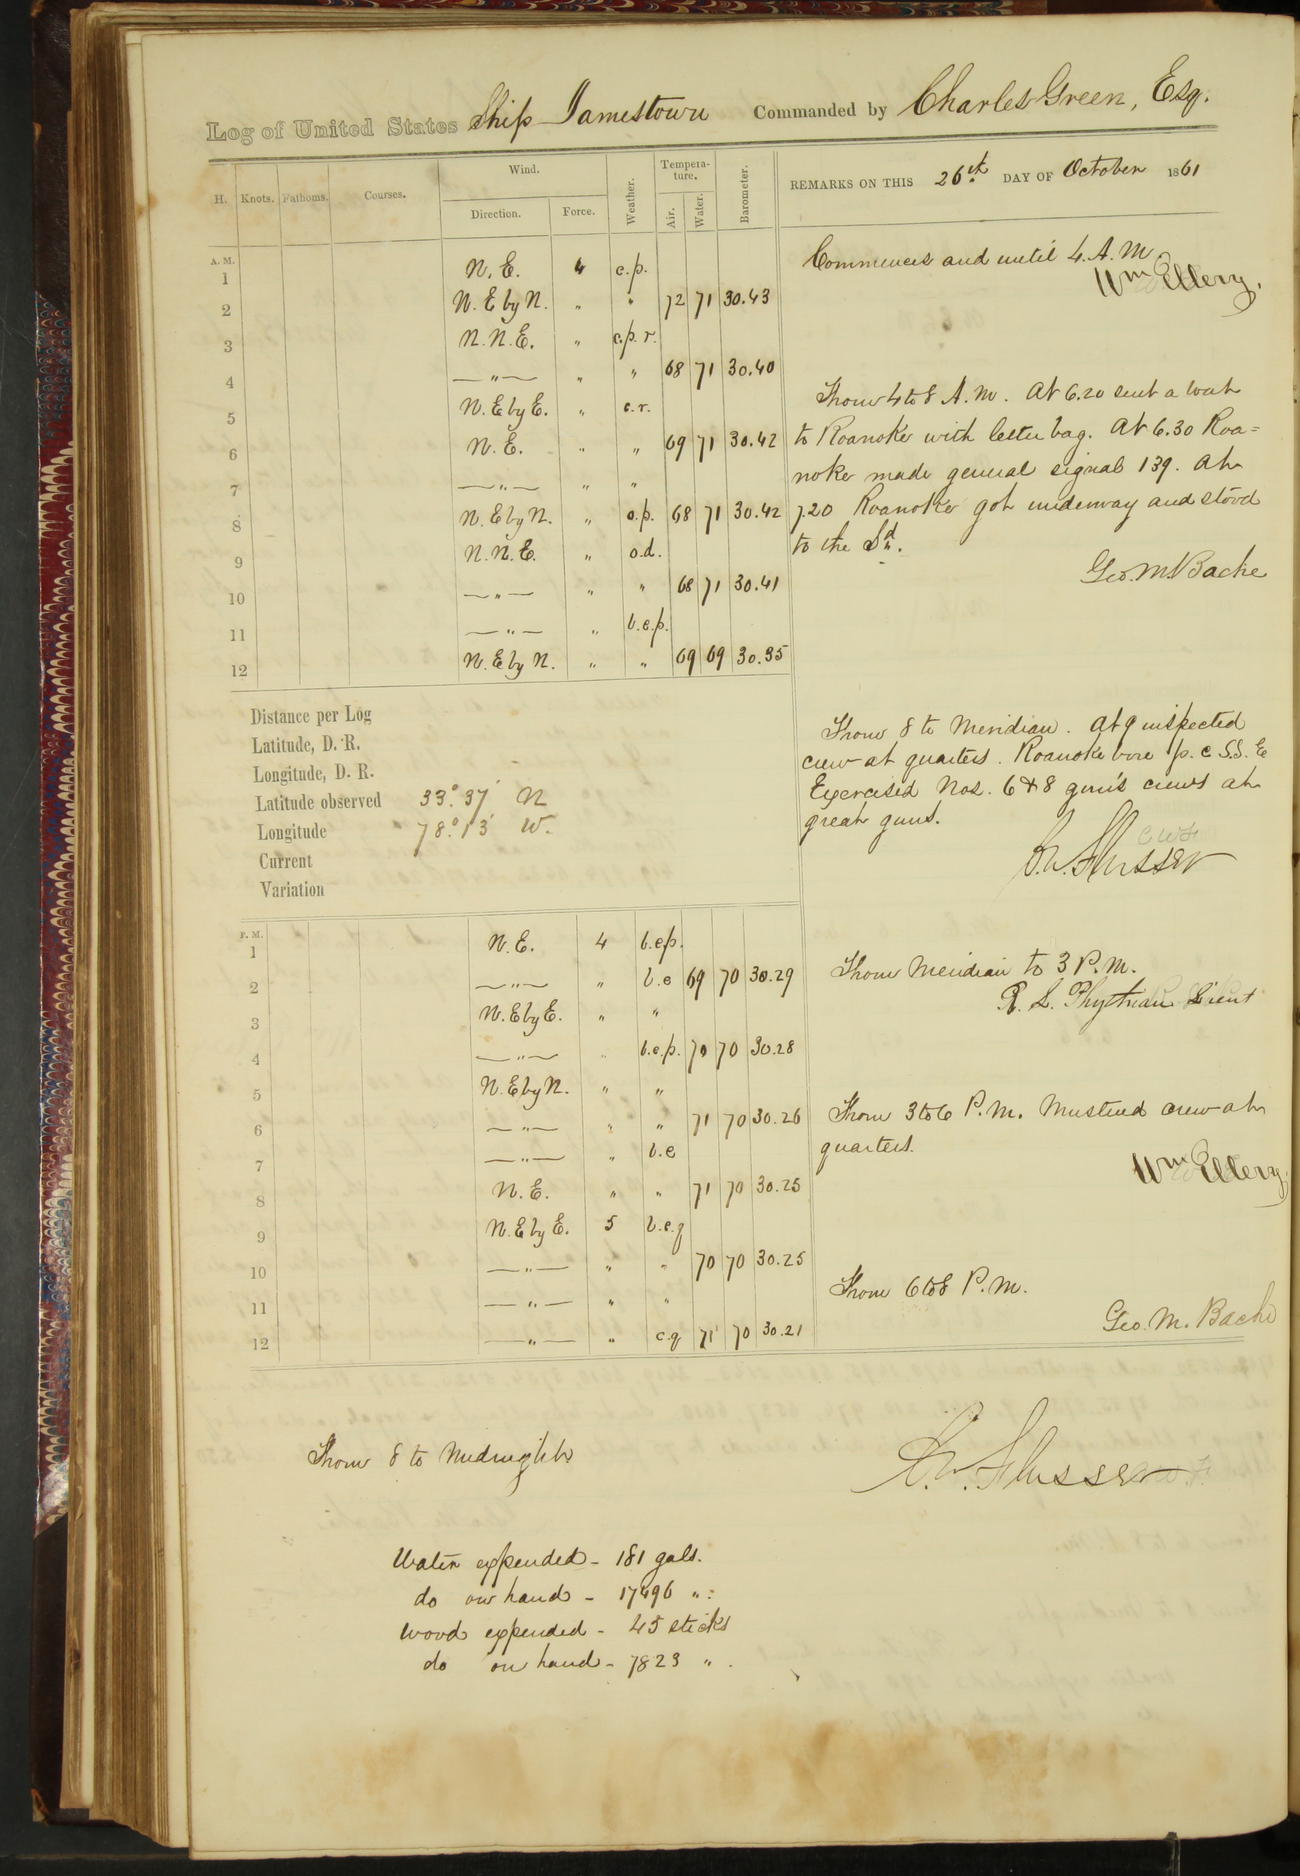 Log of United States Ship Jamestown Commanded by Charles Green, Esq.
H. Knots. Fathoms. Courses. Wind. Direction. Force. Weather. Temperature. Air. Water. Barometer. REMARKS ON THIS 26th DAY OF October 1861
A. M.
1 N. E. 4 c.p.
2 N. E by N. " " 72 71 30.43
3 N. N. E. " c.p.r.
4 —"— " " 68 71 30.40
5 N. E by E. " c.r.
6 N. E. " " 69 71 30.42
7 —"— " "
8 N. E by N. " o.p. 68 71 30.42
9 N. N. E. " o.d.
10 —"— " " 68 71 30.41
11 —"— " b.c.p.
12 N. E by N. " " 69 69 30.35
Commences and until 4. A. M.
Wm Ellery.
From 4 to 8 A. M. At 6.20 sent a boat
to Roanoke with letter bag. At 6.30 Roa=
noke made general signal 139. At
7.20 Roanoke got underway and stood
to the Sd.
Geo. M. Bache
From 8 to Meridian. At 9 inspected
crew at quarters. Roanoke bore p. c S.S. E
Exercised Nos. 6 & 8 gun's crews at
great guns.
C. W. Flusser
Distance per Log
Latitude, D. R.
Longitude, D. R.
Latitude observed 33° 37' N
Longitude 78° 13' W.
Current
Variation
P. M.
1 N. E. 4 b.c.p.
2 —"— " b.c 69 70 30.29
3 N. E by E. " "
4 —"— " b.c.p. 70 70 30.28
5 N. E by N. " "
6 —"— " " 71 70 30.26
7 —"— " b.c
8 N. E. " " 71 70 30.25
9 N. E by E. 5 b.c.q
10 —"— " " 70 70 30.25
11 —"— " "
12 —"— " c.q 71 70 30.21
From Meridian to 3 P. M.
R. L. Phythian Lieut
From 3 to 6 P. M. Mustered crew at
quarters.
Wm Ellery.
From 6 to 8 P. M.
Geo. M. Bache
From 8 to Midnight
C. W. Flusser
Water expended - 181 gals.
do on hand - 17496 ".
Wood expended - 45 sticks
do on hand - 7823 ".